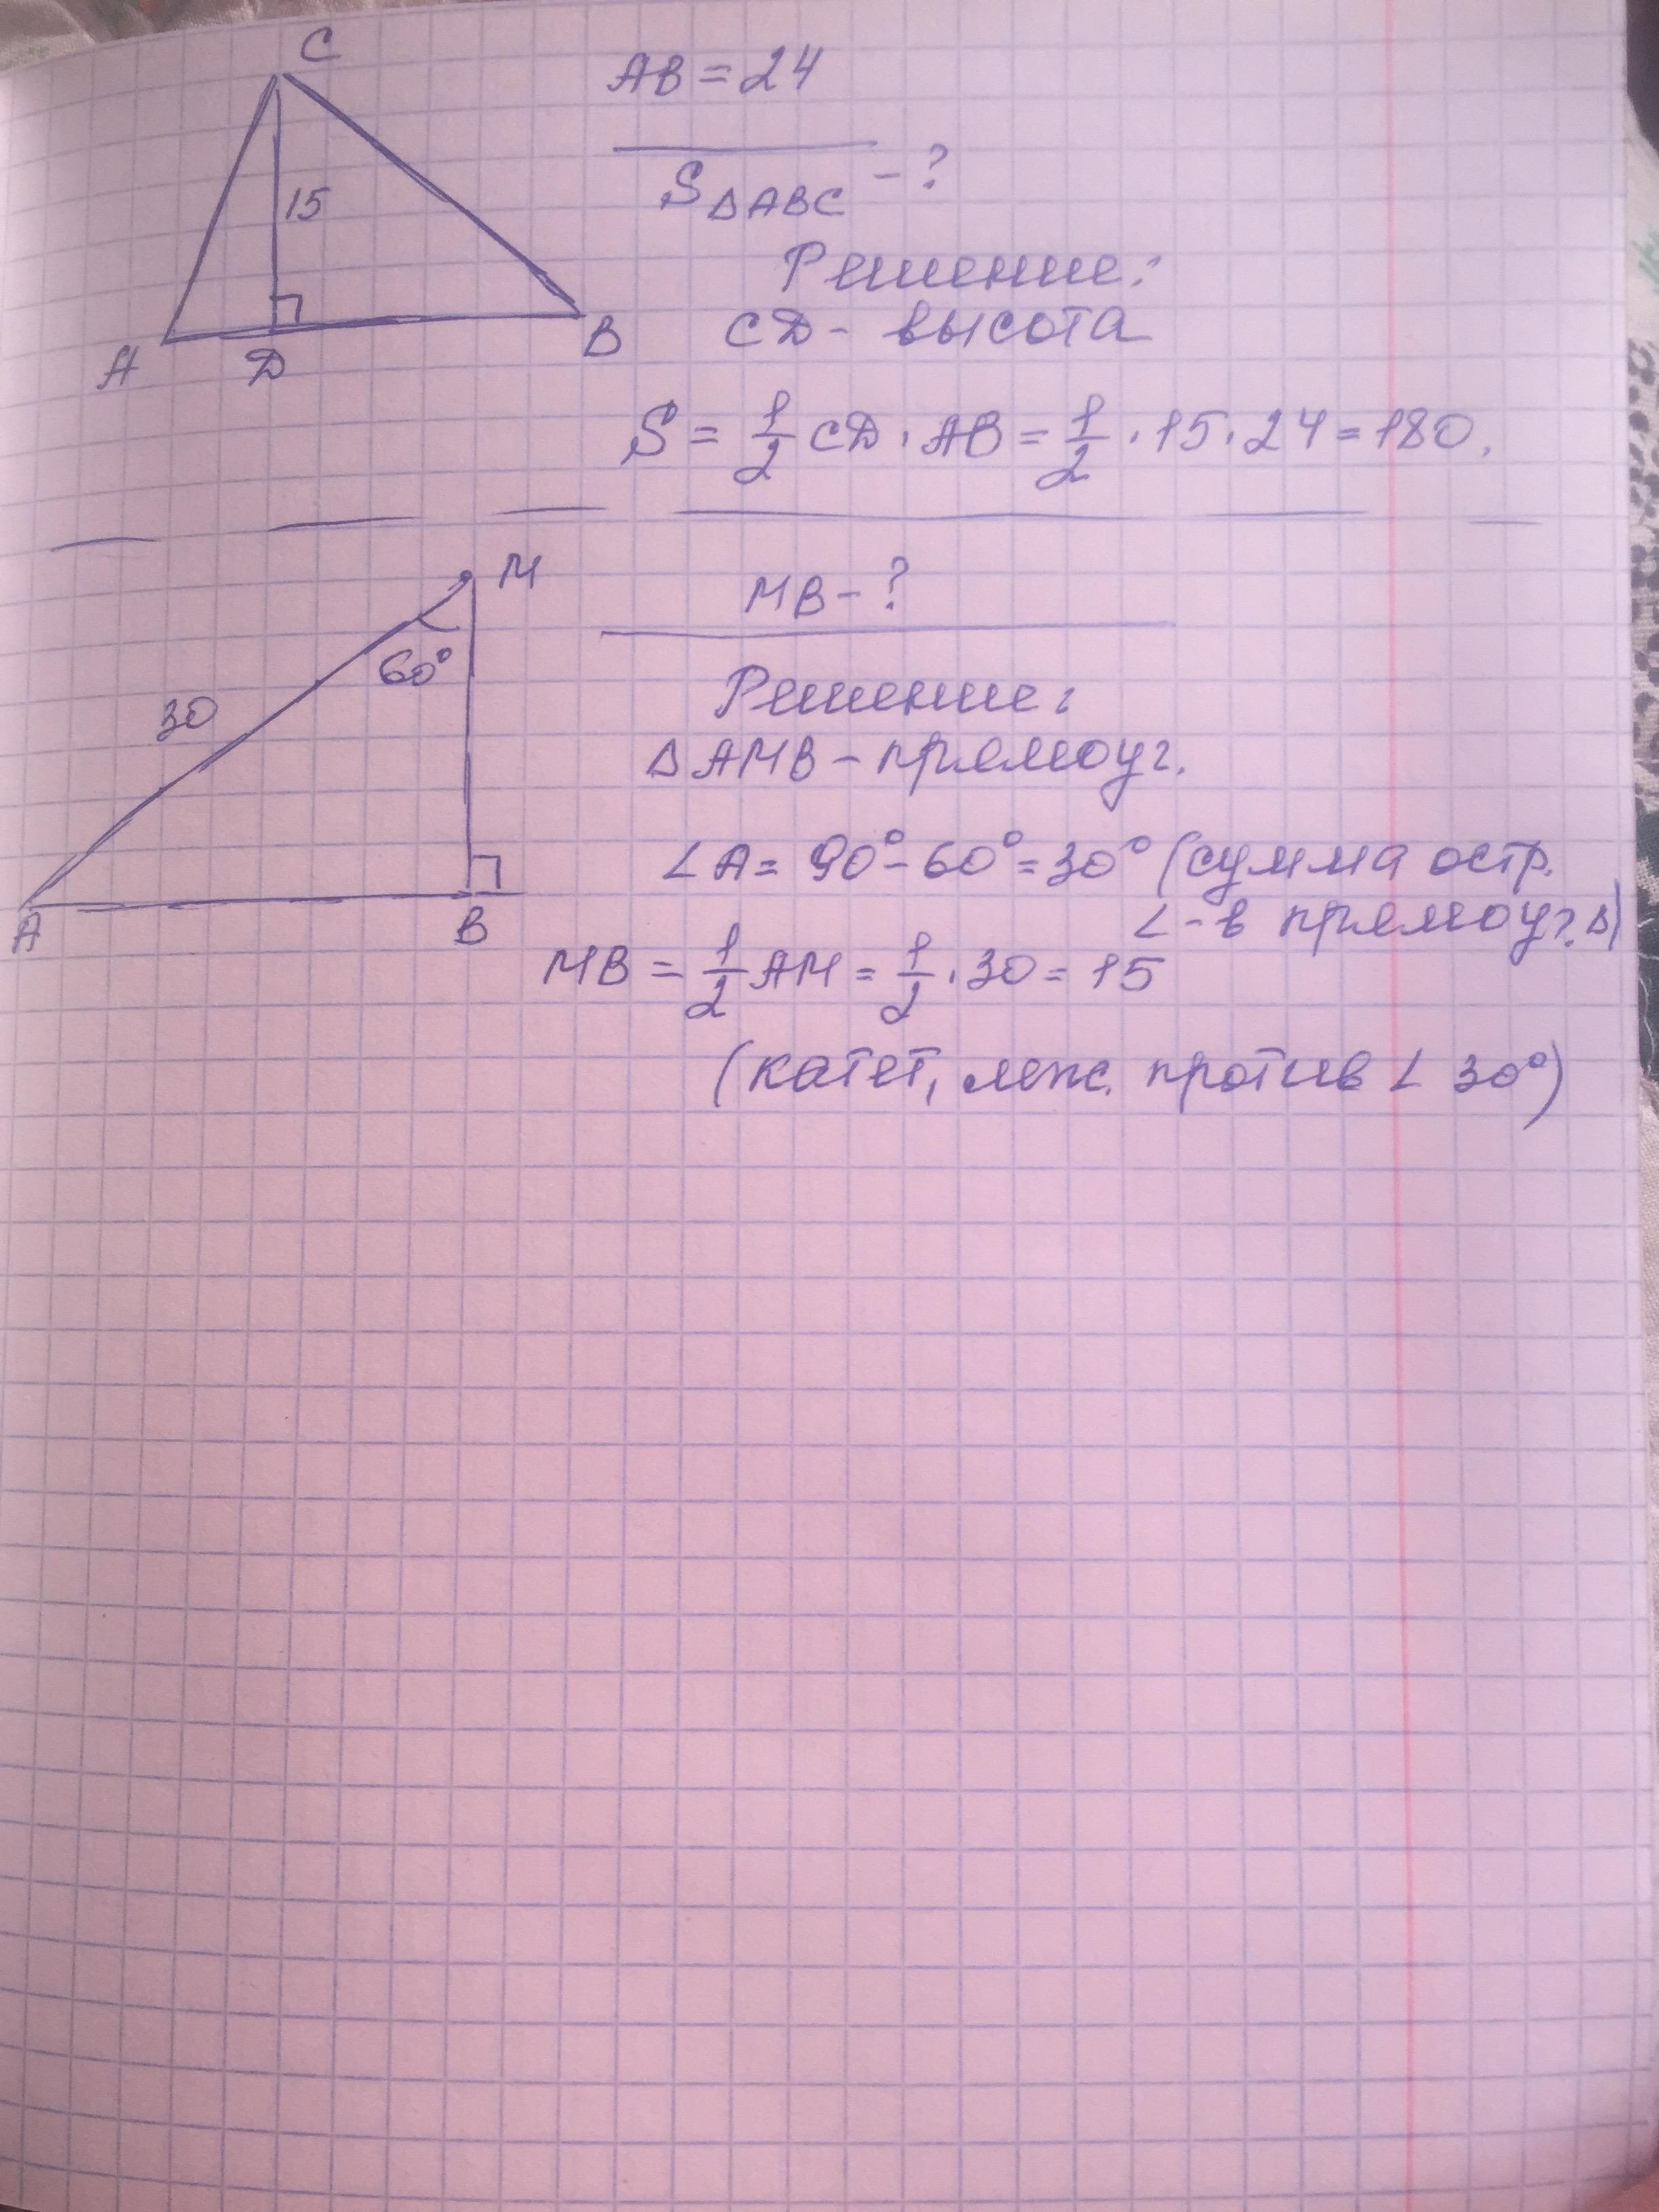 C
AB = 24
15
S△ABC - ?
Решение:
CD - высота
A D B
S = 1/2 CD · AB = 1/2 · 15 · 24 = 180.
M
MB - ?
60°
30
Решение:
△AMB - прямоуг.
∠A = 90° - 60° = 30° (сумма остр.
∠-в прямоуг. △)
A B
MB = 1/2 AM = 1/2 · 30 = 15
(катет, леж. против ∠ 30°)